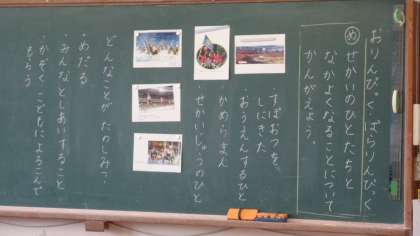 おりんぴっく ぱらりんぴっく
め せかいのひとたちと
なかよくなることについて
かんがえよう。
すぽおつを、
しにきた
・おうえんするひと
かめらまん
・せかいじゅうのひと
どんなことが たのしみ？
・めだる
・みんなとしあいすること
・かぞく こどもによろこんで
もらう